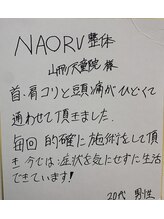 NAORU整体
山形天童院 様
首・肩コリと頭痛がひどくて
通わせて頂きました。
毎回 的確に施術をして頂
き 今では 症状を気にせずに生活
できています!
20代 男性